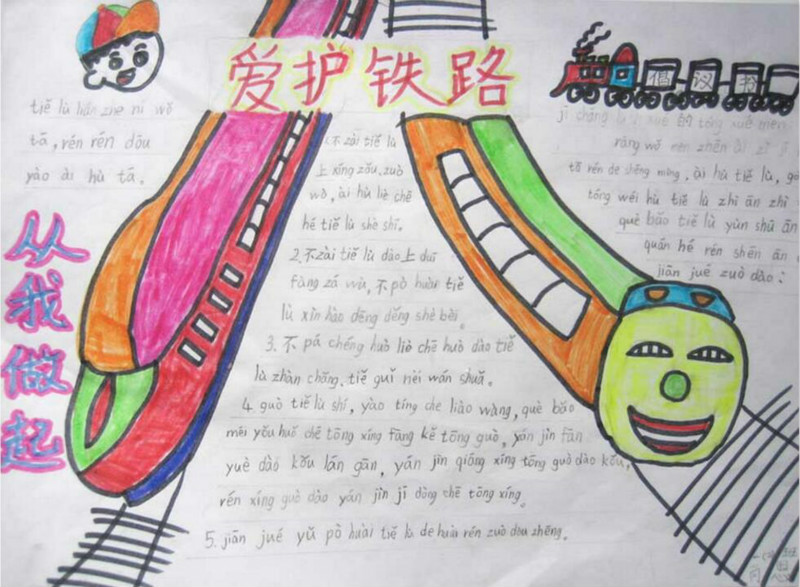 爱护铁路
倡议书
tiě lù lián zhe nǐ wǒ
tā, rén rén dōu
yào ài hù tā。
从我做起
tóng xué men
ràng wǒ men zhēn ài zì jǐ
tā rén de shēng mìng, ài hù tiě lù, gò
tóng wéi hù tiě lù zhì ān zhì
què bǎo tiě lù yùn shū ān
quán hé rén shēn ān
jiān jué zuò dào:
1.不zài tiě lù
上xíng zǒu、zuò
wò, ài hù liè chē
hé tiě lù shè shī。
2.不zài tiě lù dào上duī
fàng zá wù, 不pò huài tiě
lù xìn hào dēng děng shè bèi。
3.不pá chéng huò liè chē huò dào tiě
lù zhàn chǎng、tiě guǐ nèi wán shuǎ。
4.guò tiě lù shí, yào tíng che liào wàng, què bǎo
méi yǒu huǒ chē tōng xíng fāng kě tōng guò, yán jìn fān
yuè dào kǒu lán gān, yán jìn qiǎng xíng tōng guò dào kǒu,
rén xíng guò dào yán jìn jī dòng chē tōng xíng。
5.jiān jué yǔ pò huài tiě lù de huài rén zuò dòu zhēng。